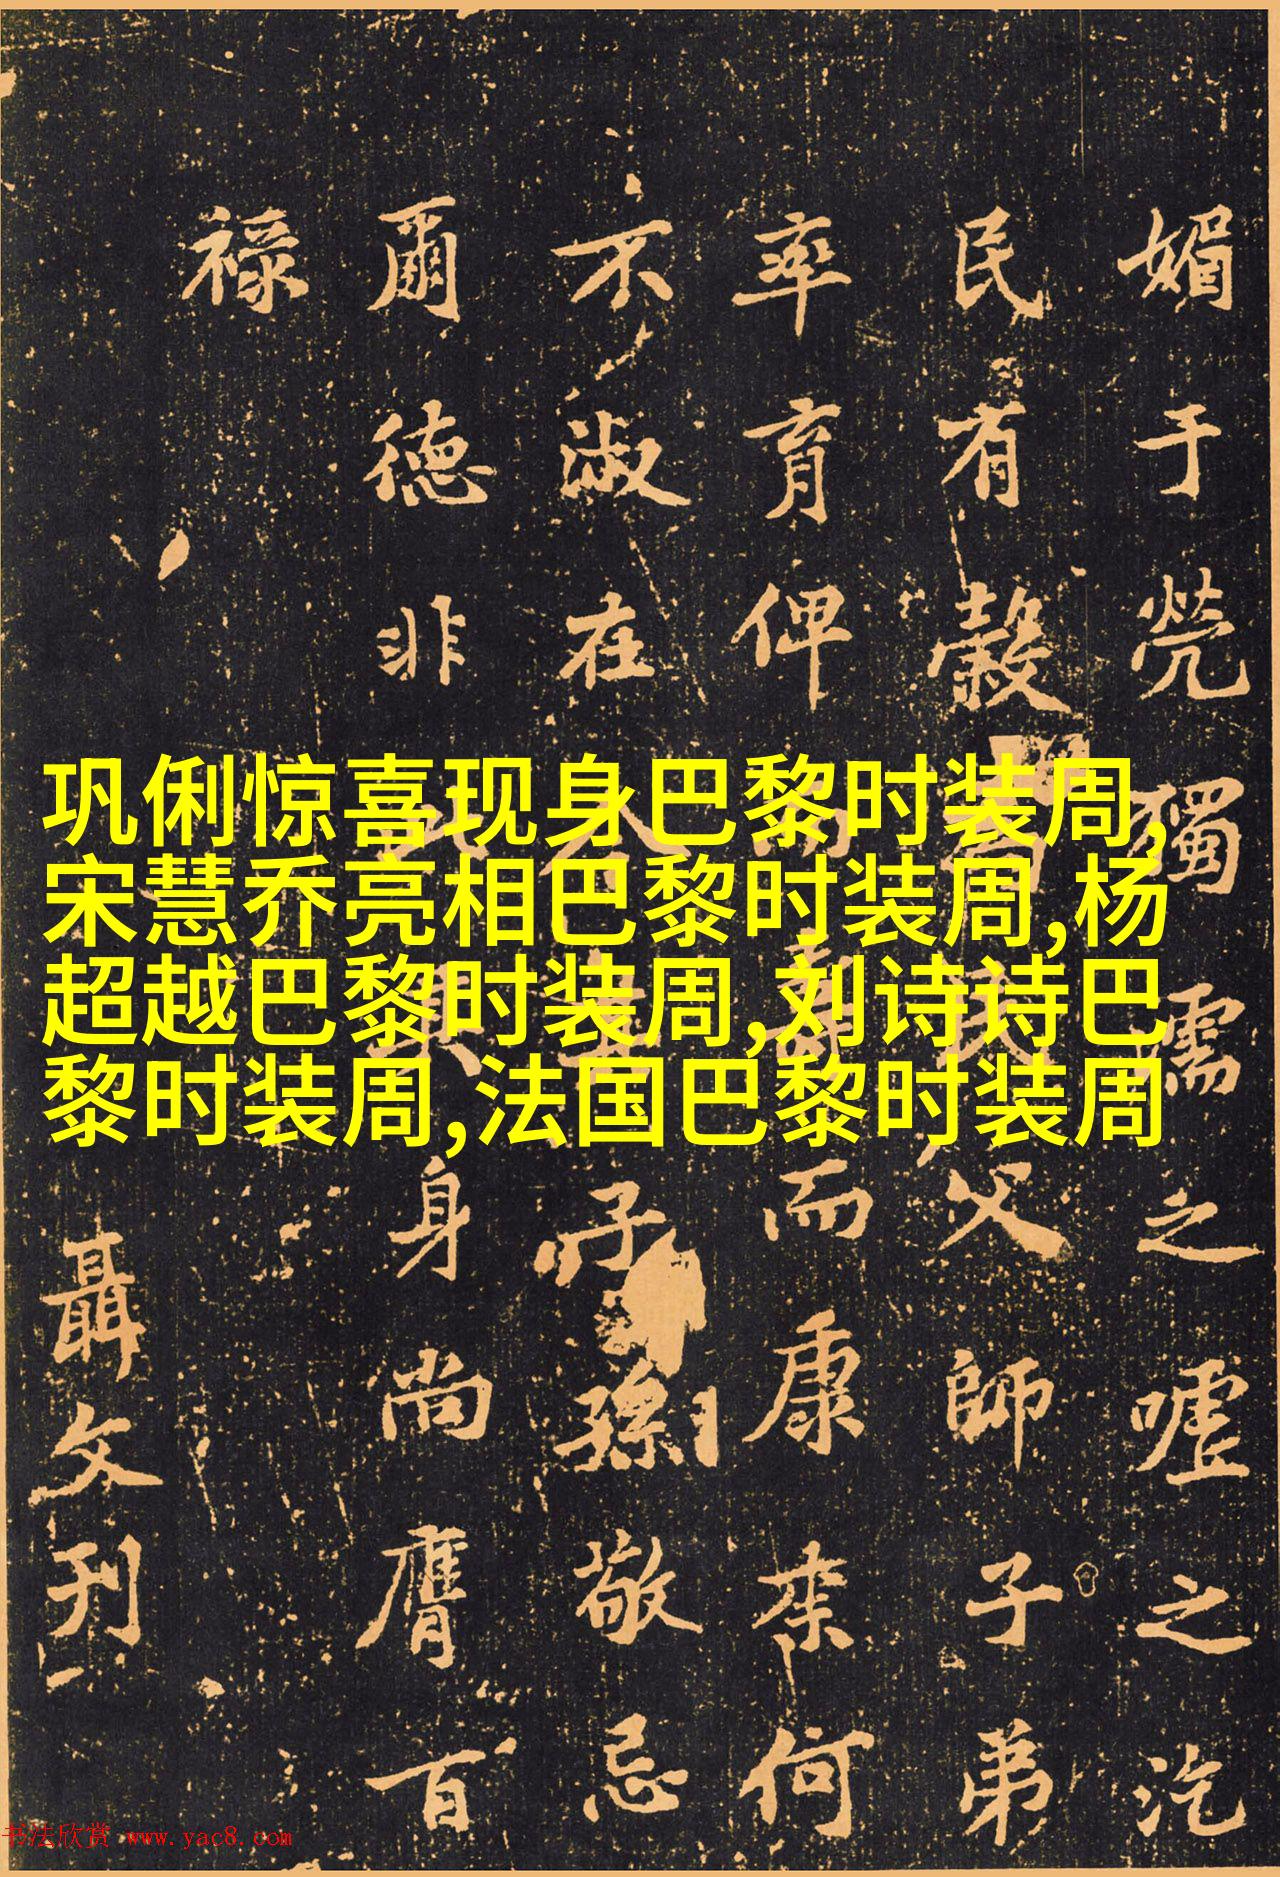 巩俐惊喜现身巴黎时装周,
宋慧乔亮相巴黎时装周,杨
超越巴黎时装周,刘诗诗巴
黎时装周,法国巴黎时装周
媚于煢獨濡之嘘之汔
民有穀民父師子弟
率育俾而康来何
不淑在子孫敬忌
爾德非身尚膺百
祿
聶文刊
书法欣赏 www.yac8.com